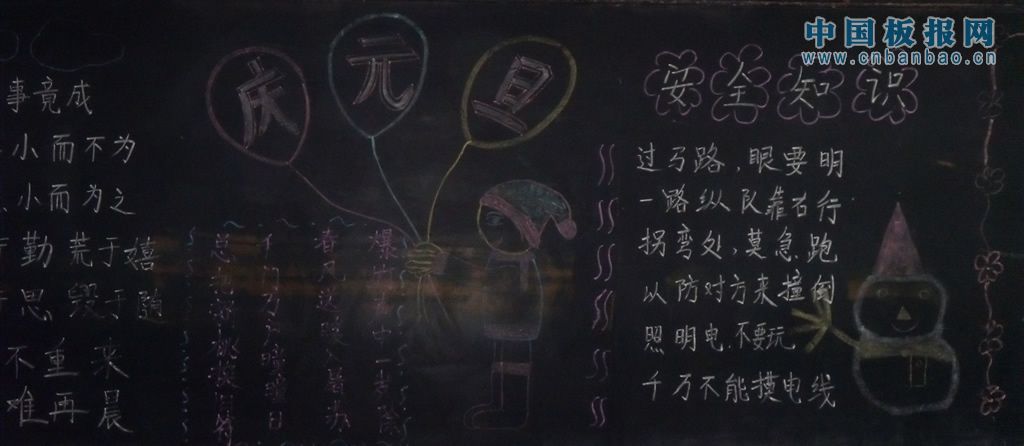 中国板报网
www.cnbanbao.cn
事竟成
小而不为
小而为之
勤荒于嬉
思毁于随
不重来
难再晨
庆元旦
爆竹声中一岁除
春风送暖入屠苏
千门万户曈曈日
总把新桃换旧符
安全知识
过马路，眼要明
一路纵队靠右行
拐弯处，莫急跑
以防对方来撞倒
照明电.不要玩
千万不能摸电线